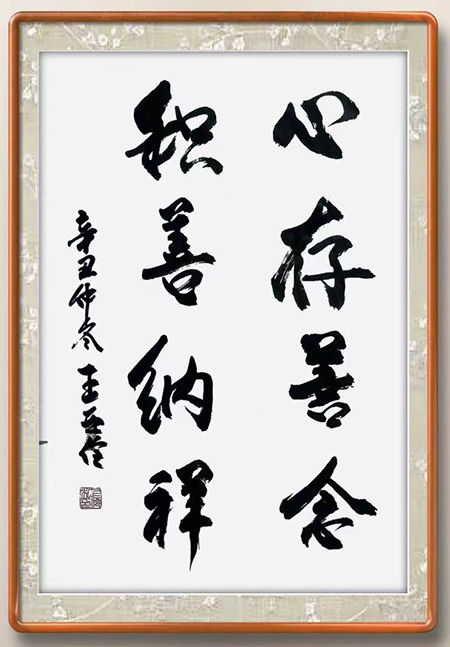 心存善念
积善纳祥
辛丑仲冬 王亚